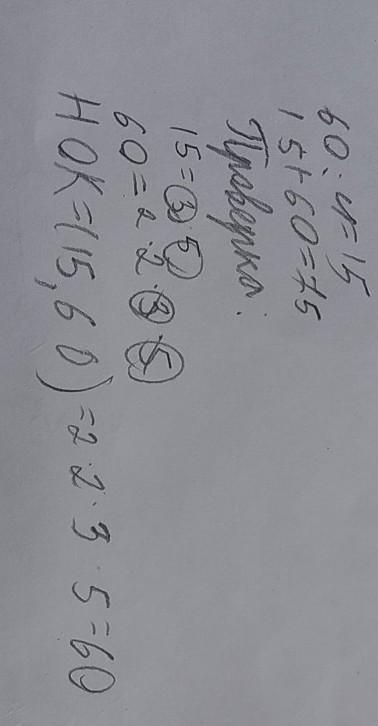 60:4=15
15+60=75
Проверка:
15=3·5
60=2·2·3·5
НОК=(15,60)=2·2·3·5=60